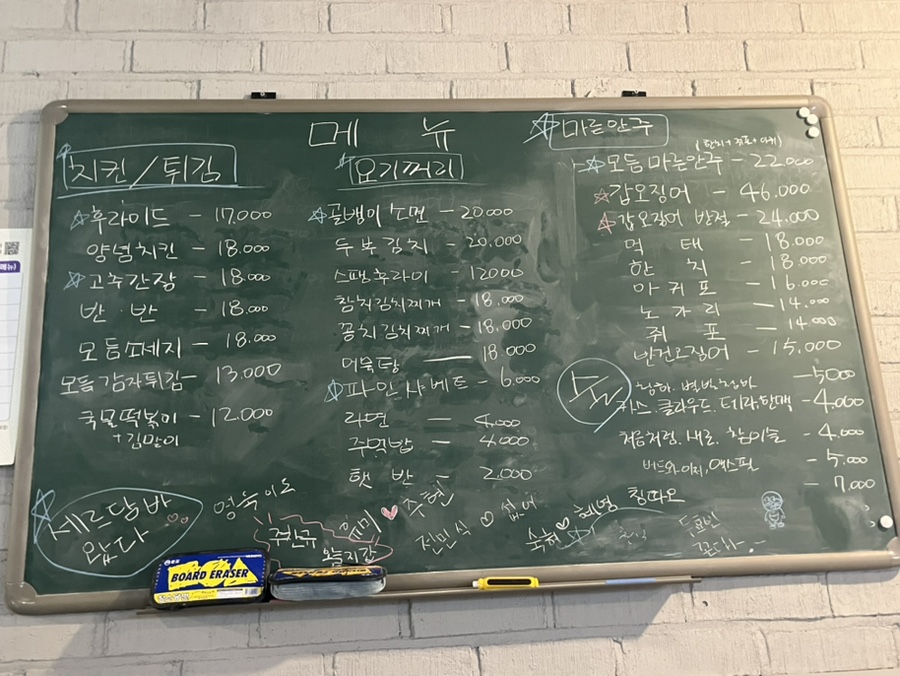 메 뉴
치킨/튀김
후라이드 - 17.000
양념치킨 - 18.000
고추간장 - 18.000
반·반 - 18.000
모듬소세지 - 18.000
모듬감자튀김 - 13.000
국물떡볶이 - 12.000
+김말이
요기꺼리
골뱅이 소면 - 20000
두부김치 - 20,000
스팸후라이 - 12000
참치김치찌개 - 18.000
꽁치김치찌개 - 18,000
어묵탕 - 18.000
파인샤베트 - 6.000
라면 - 4.000
주먹밥 - 4.000
햇반 - 2.000
마른안주
모듬마른안주 - 22000
갑오징어 - 46.000
갑오징어 반절 - 24.000
먹 태 - 18.000
한 치 - 18.000
아귀포 - 16.000
노가리 - 14.000
쥐 포 - 14000
반건오징어 - 15,000
청하. 별빛청하 - 5000
카스. 클라우드. 테라. - 4.000
처음처럼. 새로. 참이슬 - 4.000
버드와이저, - 5.000
칭따오 - 7.000
왔다
주현
BOARD ERASER